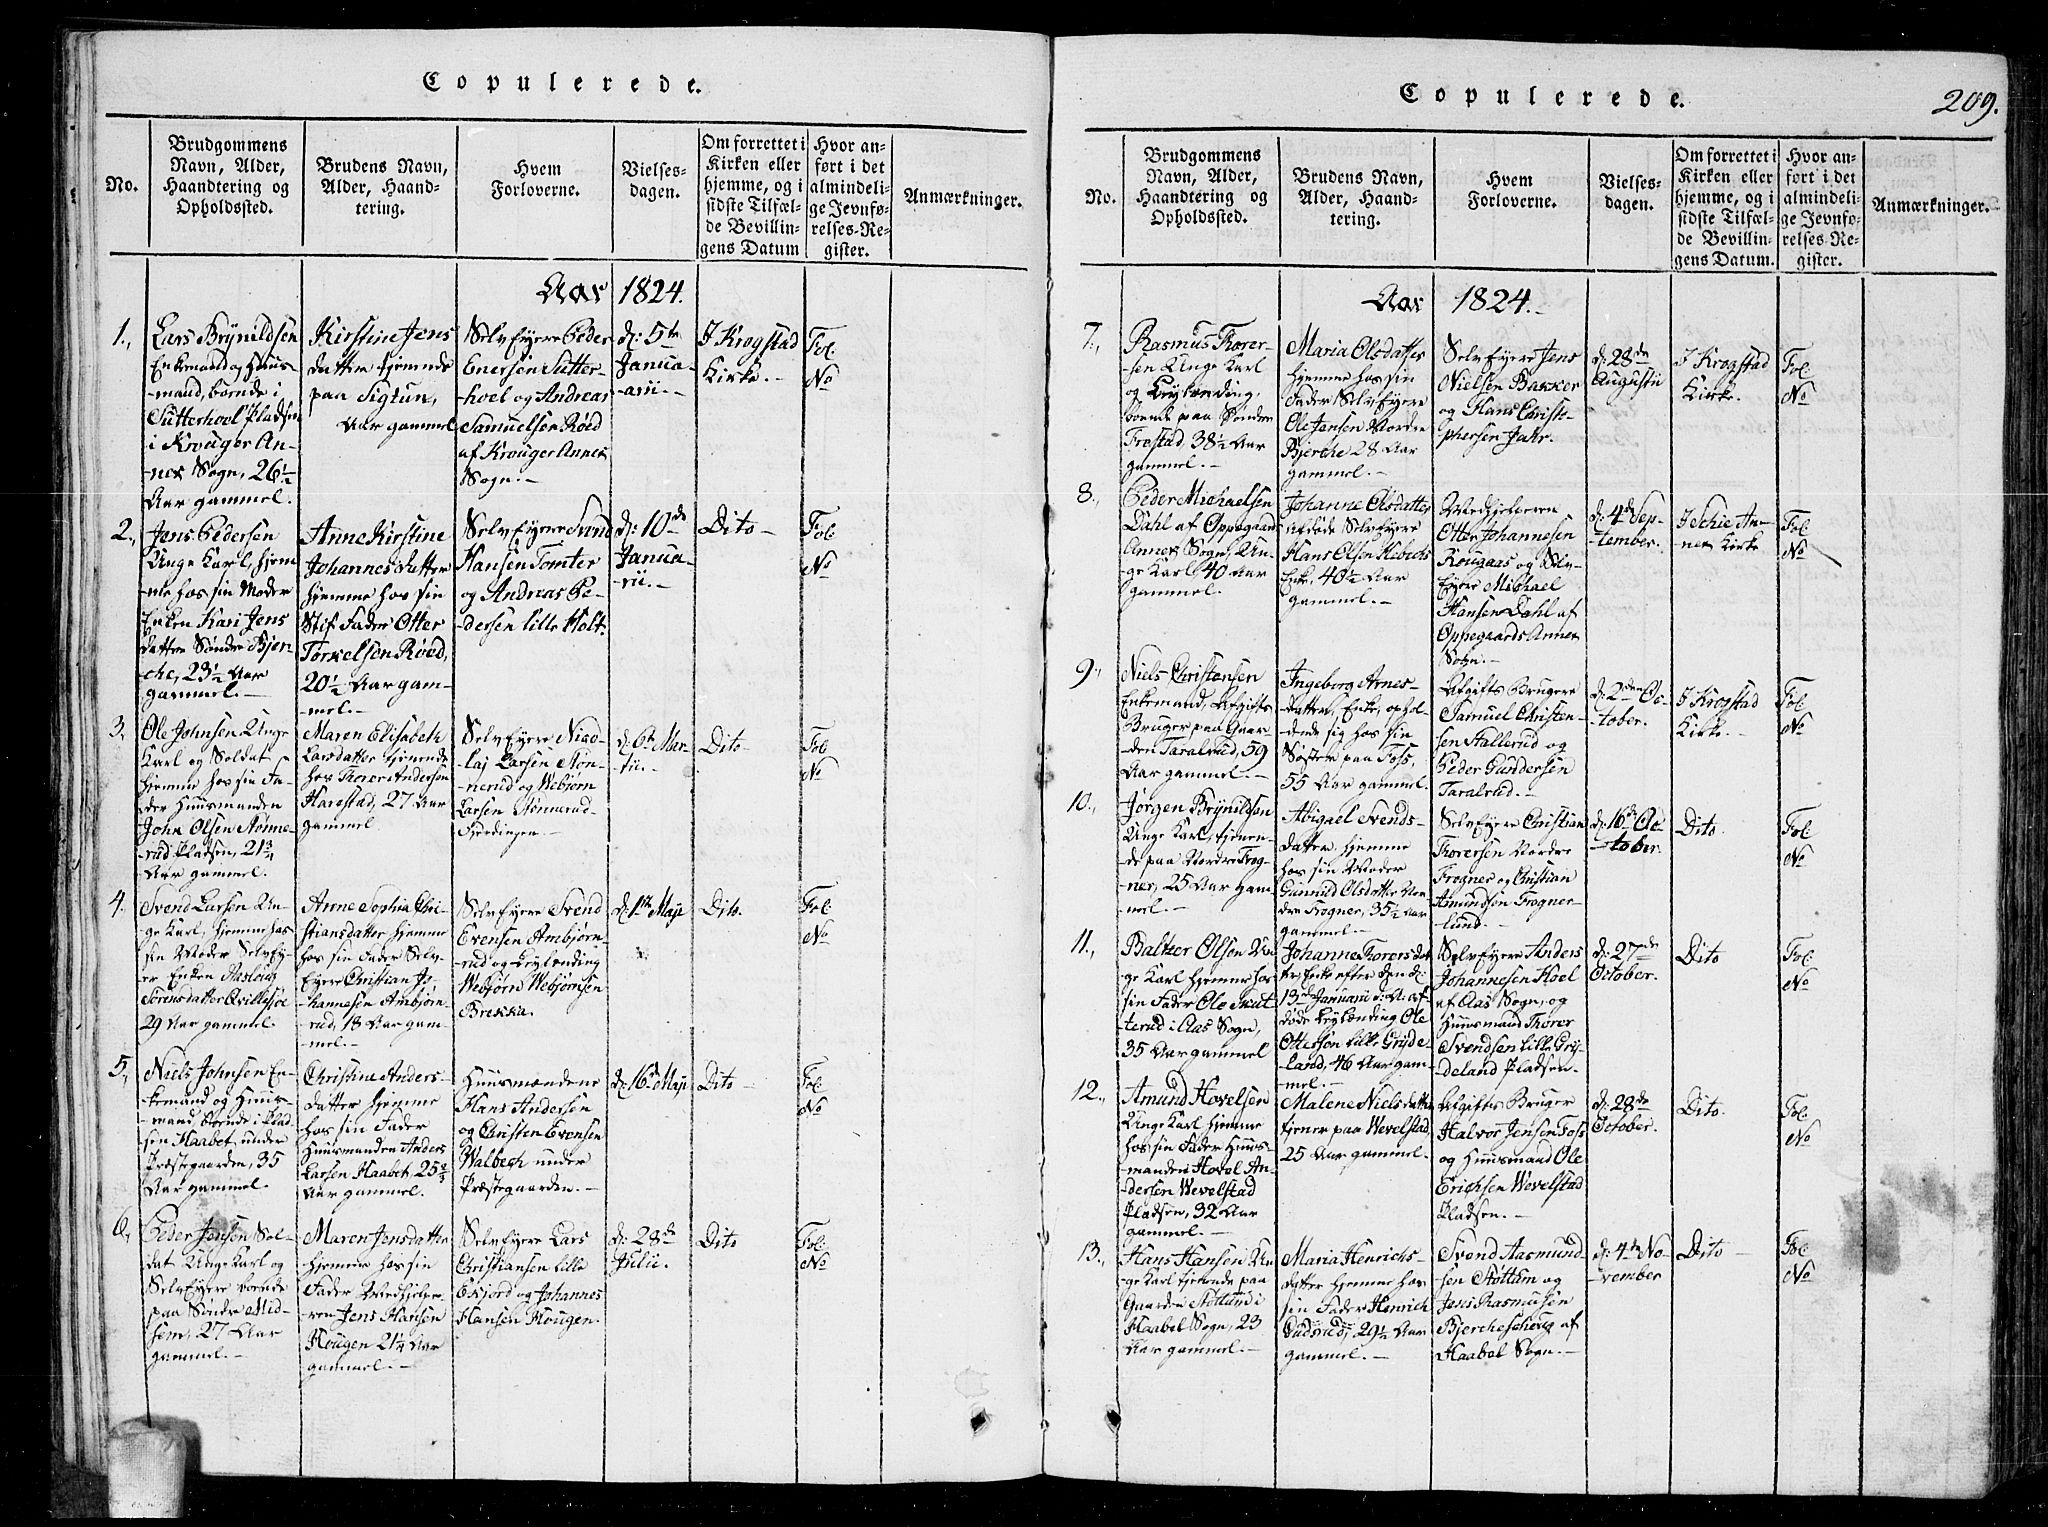 Copulerede.
No.
Brudgommens
Navn, Alder,
Haandtering og
Opholdssted.
Brudens Navn,
Alder, Haand-
tering.
Hvem
Forloverne.
Vielses-
dagen.
Om forrettet i
Kirken eller
hjemme, og i
sidste Tilfæl-
de Bevillin-
gens Datum
Hvor an-
ført i det
almindeli-
ge Jevnfø-
relses-Re-
gister.
Anmærkninger.
Aar 1824.
1.,
Lars Brynildsen
Enkemand og Huus-
mand, boende i
Sutterhoel Pladsen
i Krouger An-
nex Sogn, 26½
Aar gammel.
Kirstine Jens
datter tjenende
paa Sigtun,
Aar gammel
Selv Eyere Peder
Enersen Sutter-
hoel og Andreas
Samuelsen Røed
af Krouger Annex
Sogn.-
d: 5te
Janua-
arii.-
I Krogstad
Kirke.-
Fol.
No
2.,
Jens Pedersen
Unge Karl, hjem-
me hos sin Moder
Enken Kari Jens
datter Søndre Bjer-
che, 23½ Aar
gammel.-
Anne Kirstine
Johannesdatter
hjemme hos sin
Stif Fader Otter
Torkelsen Røed,
20½ Aar gam-
mel.-
Selv Eyere Svend
Hansen Tomter
og Andreas Pe-
dersen lille Holt.
d: 10de
Janua-
rii.-
Dito-
Fol.
No
3.,
Ole Johnsen Unge
Karl og Soldat
hjemme hos sin Fa-
der Huusmanden
John Olsen Stønne-
rud Pladsen, 21¾
Aar gammel.
Maren Elisabeth
Larsdatter tjenende
hos Thorer Andersen
Harestad, 27 Aar
gammel.
Selv Eyere Nico-
laj Larsen Støn-
nerud og Webjørn
Larsen Stønnerud
d: 6te Mar-
tii.-
Dito-
Fol.
No
4.
Svend Larsen Un-
ge Karl, hjemme hos
sin Moder Selv Ey-
er Enken Aaslaug
Sørensdatter Qvillesøe
29 Aar gammel.
Anne Sophia Chri-
stiansdatter hjemme
hos sin Fader Selv-
Eyere Christian Jo-
hannesen Ambjør-
rud, 18 Aar gam-
mel.-
Selv Eyere Svend
Evensen Ambjørn-
rud og Leylænding
Webjørn Webjørnsen
Brekka.
d: 1ste Maji
Dito.
Fol.
No
5.,
Niels Johnsen En-
kemand og Huus-
mand, boende i Plad-
sen Haabet under
Præstegaarden, 35
Aar gammel.
Christine Anders-
datter hjemme
hos sin Fader
Huusmanden Anders
Larsen Haabet 25¾
Aar gammel.
Huusmændene
Hans Andersen
og Christen Evensen
Walbech under
Præstegaarden.-
d: 16de Maji
Dito-
Fol.
No
6.,
Peder Jensen Sol-
dat Unge Karl og
Selv Eyere boende
paa Søndre Mid-
sem, 27 Aar
gammel.-
Maren Jensdatter
hjemme hos sin
Fader Medhjelpe-
ren Jens Hansen
Hougen 21¼ Aar
gammel.-
Selv Eyere Lars
Christiansen lille
og Johannes
Hansen Hougen.
d: 28de
Julii.
Dito
Fol.
No
Copulerede.
209.
No.
Brudgommens
Navn, Alder,
Haandtering og
Opholdssted.
Brudens Navn,
Alder, Haand-
tering.
Hvem
Forloverne.
Vielses-
dagen.
Om forrettet i
Kirken eller
hjemme, og i
sidste Tilfæl-
de Bevillin-
gens Datum.
Hvor an-
ført i det
almindeli-
ge Jevnfø-
relses-Re-
gister.
Anmærkninger.
Aar 1824.-
7.,
Rasmus Thorer-
sen Unge Karl
og Leylænding
boende paa Søndre
Frestad, 38½ Aar
gammel.-
Maria Olsdatter
hjemme hos sin
Fader Selv Eyere
Ole Jensen Nordre
Bjerche 28 Aar
gammel.-
Selv Eyere Jens
Nielsen Bakker
og Hans Christo-
phersen Jahr.
d: 28de
Augustii
I Krogstad
Kirke.
Fol.
No
8.,
Peder Michaelsen
Dahl af Oppegaards
Annex Sogn, Un-
ge Karl, 40 Aar
gammel.
Johanne Olsdatter
afdøde Selv Eyere
Hans Olsen Hebechs
Enke, 40½ Aar
gammel.-
Medhjelperen
Otter Johannesen
Kougaas og Selv-
Eyere Michael
Hansen Dahl af
Oppegaards Annex
Sogn.-
d: 4de Sep-
tember.
I Schie An-
nex Kirke
Fol.
No
9.,
Niels Christensen
Enkemand, Afgifts
Bruger paa Gaar-
den Taralrud, 59
Aar gammel.-
Ingeborg Arnes-
datter, Enke, ophol-
dende sig hos sin
Søster paa Foss,
55 Aar gammel.
Afgifts Brugere
Samuel Christen-
sen Stallerud og
Peder Gundersen
Taralrud.-
d: 2den Oc-
tober.
I Krogstad
Kirke.-
Fol.
No
10.,
Jørgen Brynildsen
Unge Karl, tjenen-
de paa Nordre Frog-
ner, 25 Aar gam-
mel.-
Abigael Svends-
datter hjemme
hos sin Moder
Gunnild Olsdatter Nor-
dre Frogner, 35½ Aar
gammel.-
Selv Eyere Christian
Thorersen Nordre
Frogner og Christian
Amundsen Frogner-
lund.-
d: 16de Oc-
tober.
Dito.
Fol.
No
11.,
Baltzer Olsen Un-
ge Karl hjemme hos
sin Fader Ole Skut
terud i Aas Sogn,
35 Aar gammel
Johanne Thorersdat-
ter, Enke efter den d:
13de Januarii d: A: af-
døde Leylænding Ole
Ottersen lille Gryde-
land, 46 Aar gam-
mel.-
Selv Eyere Anders
Johannesen Hoel
af Aas Sogn, og
Huusmand Thorer
Svendsen lille Gry-
deland Pladsen.-
d: 27de
October.
Dito
Fol.
No
12.,
Amund Hovelsen
Unge Karl hjemme
hos sin Fader Huus-
manden Hovel An-
dersen Wevelstad
Pladsen, 32 Aar
gammel.-
Malene Nielsdatter
tjener paa Wevelstad,
25 Aar gammel.
Afgifts Bruger
Halvor Jensen Foss
og Huusmand Ole
Erichsen Wevelstad
Pladsen.-
d: 28de
October.
Dito.
Fol.
No
13.,
Hans Hansen Un-
ge Karl tjenende paa
Gaarden Stotlund i
Haabel Sogn, 23
Aar gammel.-
Maria Henrichs-
datter hjemme hos
sin Fader Henrich
29½ Aar
gammel.-
Svend Aasmund-
sen Stottum og
Jens Rasmusen
Bjercheschoug af
Haabel Sogn.-
d: 4de No-
vember
Dito-
Fol.
No